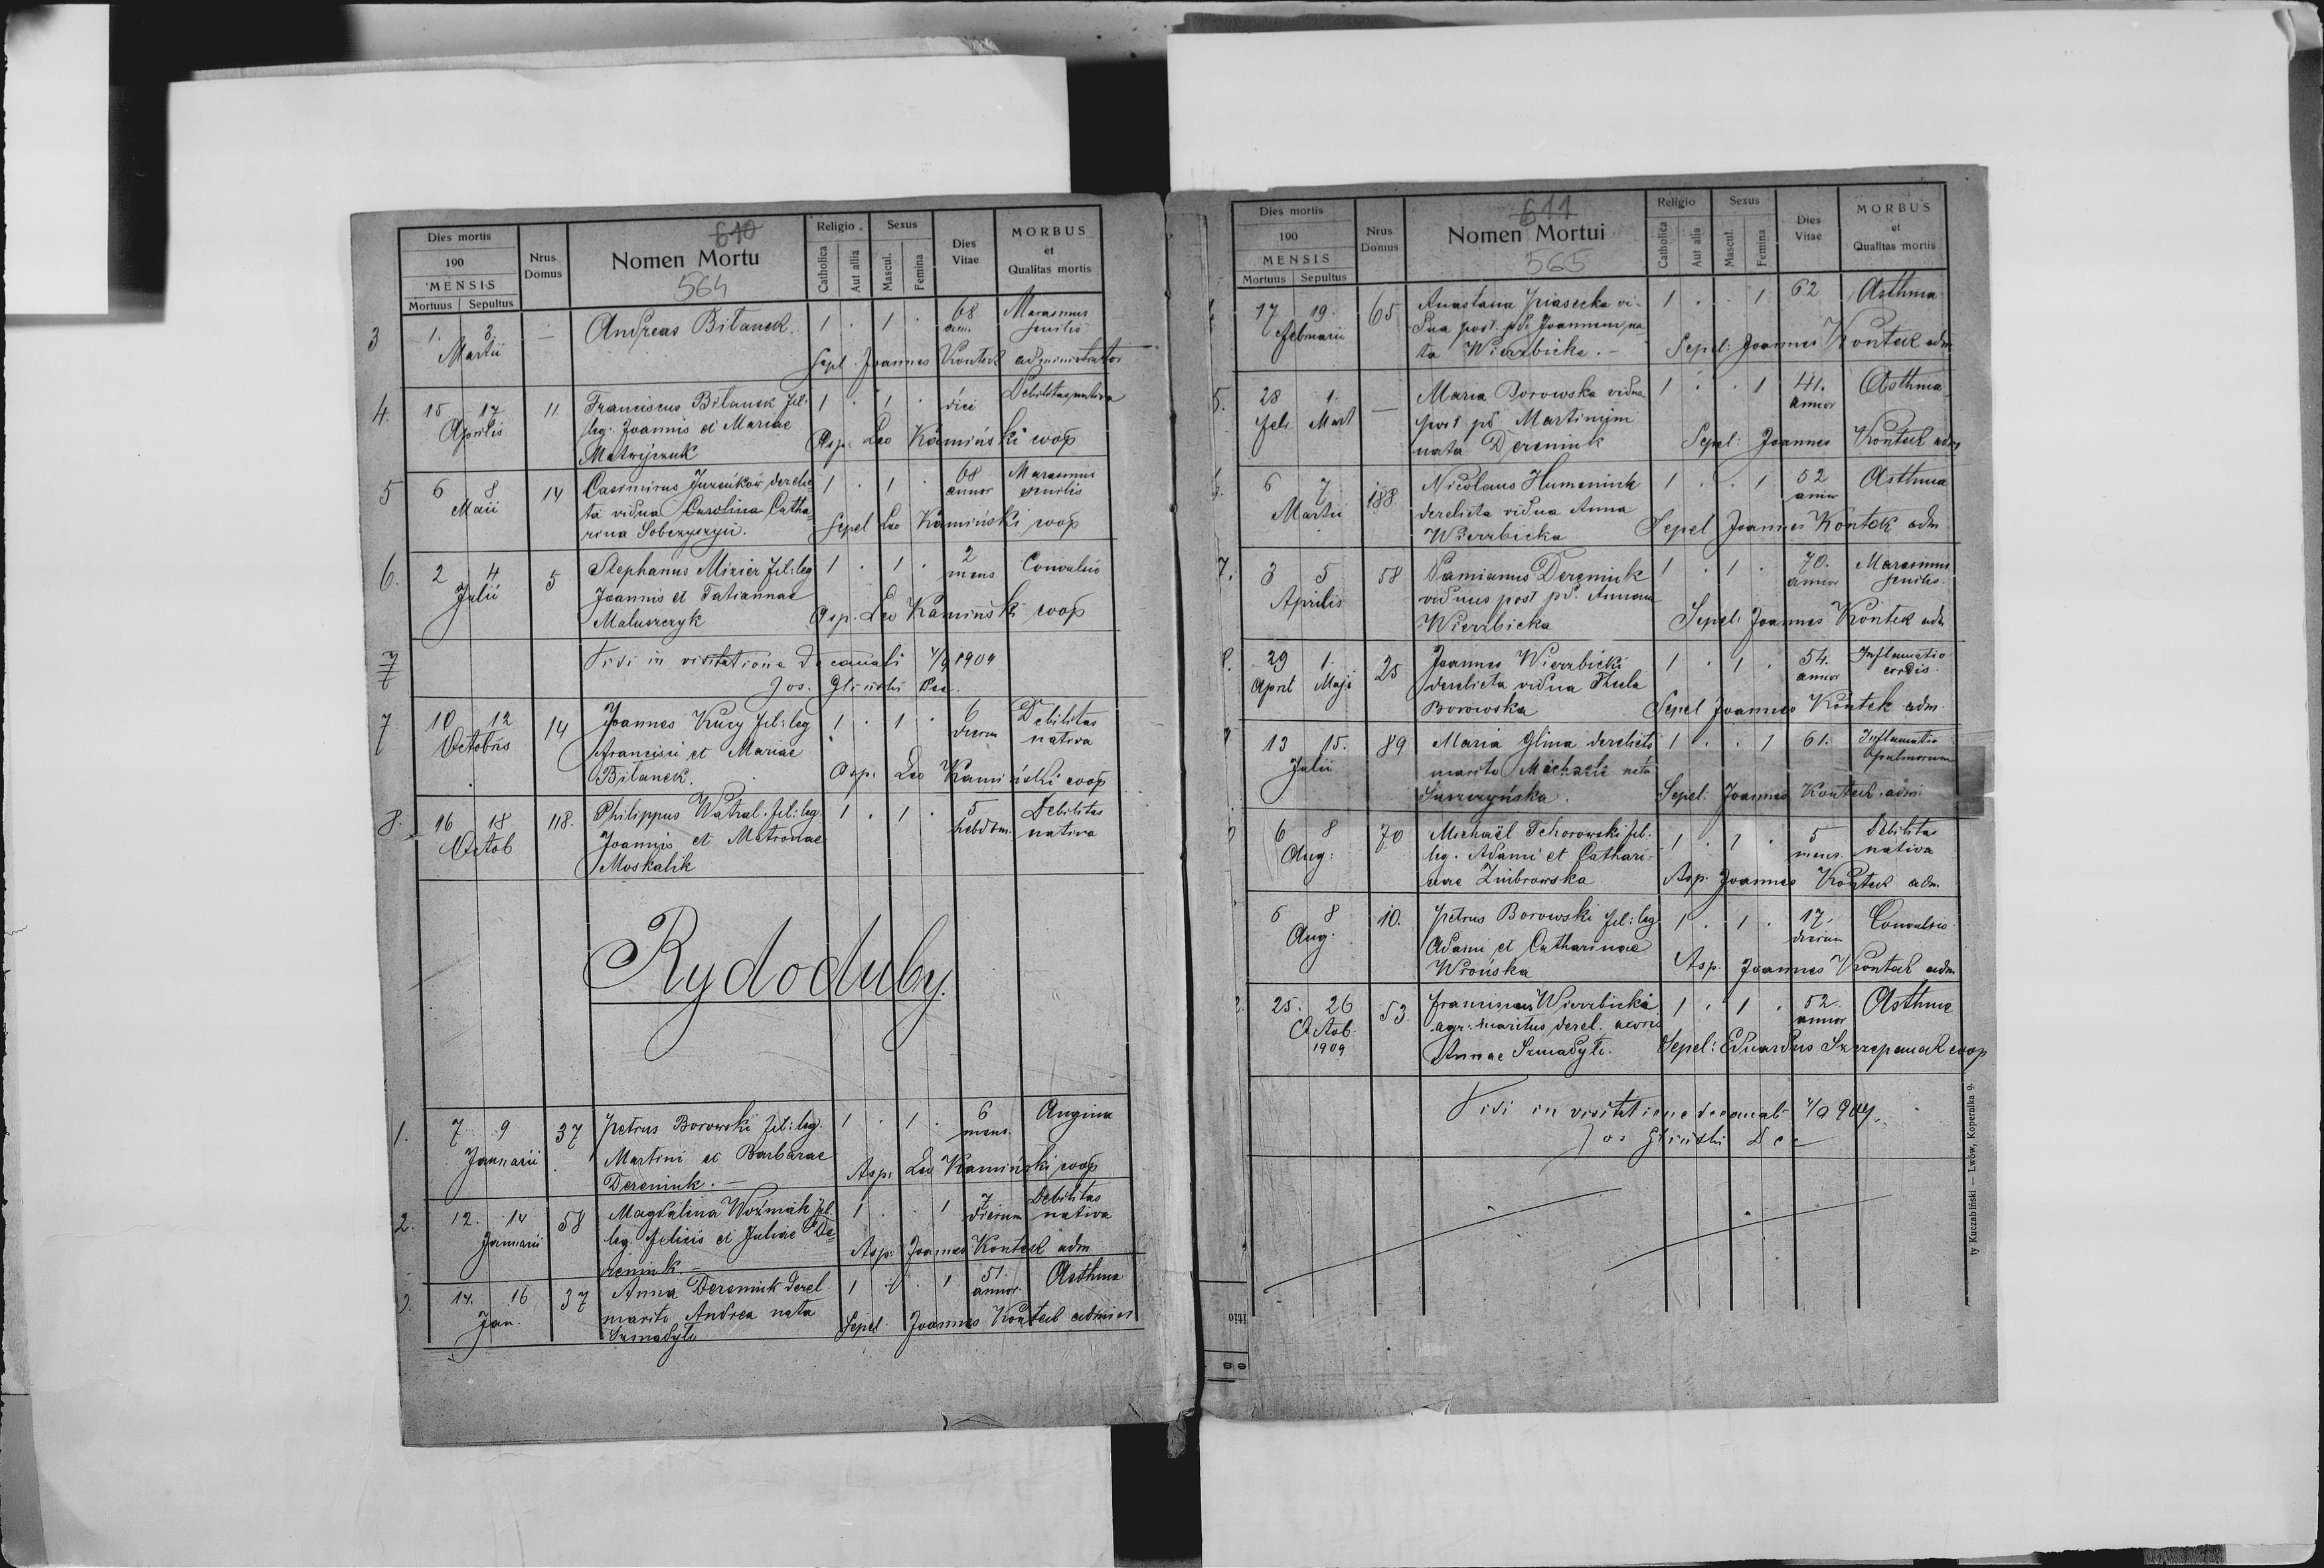 Dies mortis
190
MENSIS
Mortuus Sepultus
Nrus Domus
610
Nomen Mortu
564
Religio
Catholica
Aut allia
Sexus
Mascul.
Femina
Dies Vitae
MORBUS
et
Qualitas mortis
3 1. 3. — Andreas Bilanek. 1 . 1 . 68 Marasmus
Martii ann. senilis
Sepl. Joannes Kontek administrator
4. 15 17 11 Franciscus Bilanek fil: 1 . 1 . diei Debilitas nativa
Aprilis leg: Joannis et Mariae
Matwijczuk Asp. Leo Kamiński coop
5 6 8 14 Casimirus derelic 1 . 1 . 68 Marasmus
Maii ta vidua Carolina Catha annor senilis
rina Sobczyszyn. Sepel Leo Kamiński coop
6. 2 4 5 Stephanus Mizier fil: leg 1 . 1 . 2 Convulsio
Julii Joannis et Tatiannae mens
Maluszczyk Asp. Leo Kamiński coop
7 Visi in visitatione decanali 4/9 1909
Jos. Gliński Dec.
7 10 12 14 Joannes Kucy fil: leg 1 . 1 . 6 Debilitas
Octobris Francisci et Mariae dierum nativa
Bilanek. Asp. Leo Kamiński coop
8. 16 18 118. Philippus Watral fil: leg 1 . 1 . 5 Debilitas
Octob Joannis et Matronae hebdom. nativa
Moskalik
Rydoduby.
1. 7 9 37 Petrus Borowski fil: leg. 1 . 1 . 6 Angina
Januarii Martini et Barbarae mens.
Dereniuk. — Asp. Leo Kamiński coop
2. 12. 14 58 Magdalina Woźniak fil. 1 . . 1 7 Debilitas
Januarii leg. Felicis et Juliae De- dierum nativa
reniuk. — Asp: Joannes Kontek adm
3. 14. 16 37 Anna Dereniuk derel. 1 . . 1 51. Asthma
Jan. marito Andrea nata annor
Szmadyło Sepel. Joannes Kontek
Dies mortis
190
MENSIS
Mortuus Sepultus
Nrus Domus
611
Nomen Mortui
565
Religio
Catholica
Aut alia
Sexus
Mascul.
Femina
Dies Vitae
MORBUS
et
Qualitas mortis
17 19. 65 Anastasia Piasecka vi- 1 . . 1 62 Asthma
Februarii dua post. pd. Joannem na-
ta Wierzbicka. — Sepel: Joannes Kontek adm
5. 28 1. — Maria Borowska vidua 1 . . 1 41. Asthma
Feb. Mart post pd Martinum annor
nata Dereniuk Sepel: Joannes Kontek adm
6 7 188 Nicolaus Humeniuk 1 . . 1 52 Asthma
Martii derelicta vidua Anna annor
Wierzbicka Sepel Joannes Kontek adm
7. 3 5 58 Damianus Dereniuk 1 . 1 . 70. Marasmus
Aprilis viduus post pd. Annam annor senilis.
Wierzbicka Sepel: Joannes Kontek adm
8. 29 1. 25 Joannes Wierzbicki 1 . 1 . 54. Inflamatio
April Maji derelicta vidua Thecla annor cordis.
Borowska Sepel Joannes Kontek adm.
13 15. 89 Maria Glina derelicto 1 . . 1 61. Inflamatio
Julii marito Michaele nata pulmonum
Suszczyńska. Sepel: Joannes Kontek adm
6 8 70 Michaël Tchorowski fil: 1 . 1 . 5 Debilitas
Aug: leg. Adami et Cathari- mens. nativa
nae Asp. Joannes Kontek adm.
6 8 10. Petrus Borowski fil: leg 1 . 1 . 17. Convulsio
Aug: Adami et Catharinae dierum
Wrońska Asp. Joannes Kontek adm.
25. 26 53. Franciscus Wierzbicki 1 . 1 . 52. Asthma
Octob. agr: maritus derel. annor
1909 Annae Szmadyło. Sepel: Eduardus Szczepanek coop
Visi in visitatione decanali 4/9 909.
Jos Gliński Dec
ty Kuczabiński — Lwów, Kopernika 9.